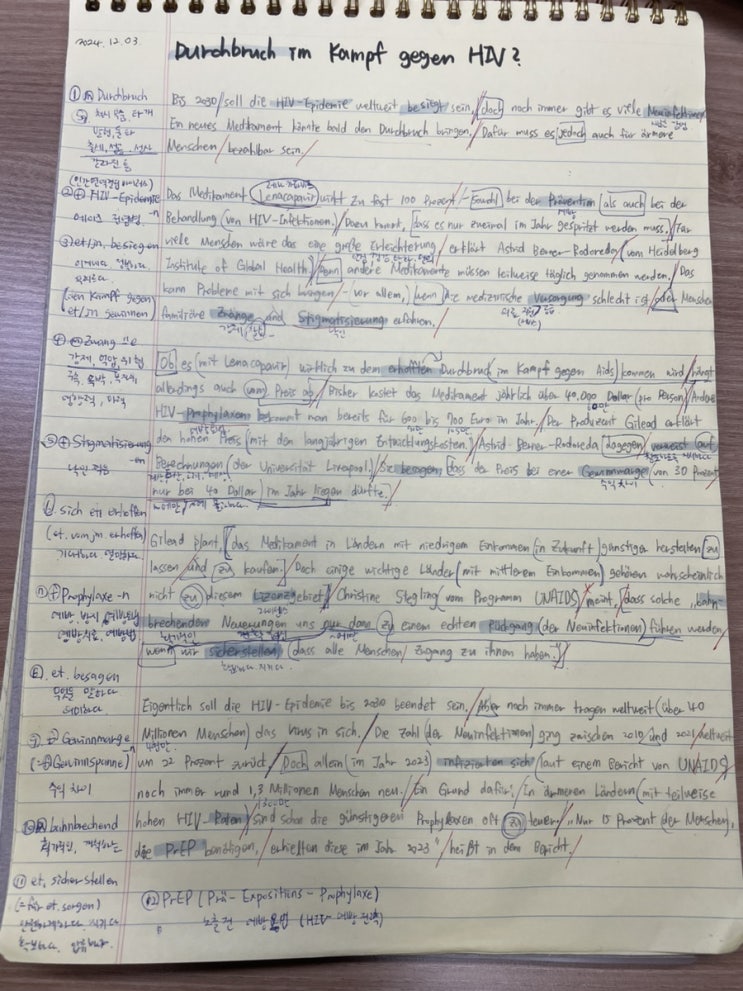 2024.12.03.
Durchbruch im Kampf gegen HIV?
① Durchbruch
Bis 2030/soll die HIV-Epidemie weltweit besiegt sein,/doch noch immer gibt es viele Neuinfektionen
Ein neues Medikament könnte bald den Durchbruch bringen./Dafür muss es jedoch auch für ärmere
Menschen/bezahlbar sein./
② HIV-Epidemie -n
Das Medikament Lenacapavir wirkt zu fast 100 Prozent/-Sowohl bei der Prävention als auch bei der
Behandlung (von HIV-Infektionen.)/Dazu kommt, dass es nur zweimal im Jahr gespritzt werden muss./Für
③ et/jn. besiegen
viele Menschen wäre das eine große Erleichterung/erklärt Astrid Berner-Rodoreda (vom Heidelberg
Institute of Global Health)/Denn andere Medikamente müssen teilweise täglich genommen werden./Das
(den Kampf gegen
et/jn gewinnen)
kann Probleme mit sich bringen/-(vor allem,) wenn die medizinische Versorgung schlecht ist/oder Menschen
familiäre Zwänge und Stigmatisierung erfahren./
④ Zwang -¨e
강제, 억압, 위협
Ob es (mit Lenacapavir) wirklich zu dem erhofften Durchbruch (im Kampf gegen Aids) kommen wird/hängt
allerdings auch vom Preis ab./Bisher kostet das Medikament jährlich über 40.000 Dollar (pro Person)/Andere
HIV-Prophylaxen bekommt man bereits für 600 bis 700 Euro im Jahr./Der Produzent Gilead erklärt
⑤ Stigmatisierung -en
den hohen Preis (mit den langjährigen Entwicklungskosten.)/Astrid Berner-Rodoreda dagegen/verweist (auf
Berechnungen (der Universität Liverpool.)/Sie besagen, dass der Preis bei einer Gewinnmarge (von 30 Prozent
수익 차이
nur bei 40 Dollar) im Jahr liegen dürfte./
⑥ sich et erhoffen
(et. von jm. erhoffen)
Gilead plant, (das Medikament in Ländern mit niedrigem Einkommen (in Zukunft) günstiger herstellen zu
lassen und zu kaufen./Doch einige wichtige Länder (mit mittlerem Einkommen) gehören wahrscheinlich
⑦ Prophylaxe -n
nicht zu diesem Lizenzgebiet/Christine Stegling (vom Programm UNAIDS)/meint, dass solche bahn-
brechendere Neuerungen uns nur dann zu einem echten Rückgang (der Neuinfektionen) führen werden,
wenn wir sicherstellen (dass alle Menschen/Zugang zu ihnen haben.)/
⑧ et. besagen
의미하다
Eigentlich soll die HIV-Epidemie bis 2030 beendet sein./Aber noch immer tragen weltweit (über 40
⑨ Gewinnmarge -n
Millionen Menschen) das Virus in sich./Die Zahl (der Neuinfektionen) ging zwischen 2010 und 2021/weltweit
(= Gewinnspanne)
um 22 Prozent zurück./Doch allein (im Jahr 2023) infizierten sich (laut einem Bericht von UNAIDS)/
수익 차이
noch immer rund 1,3 Millionen Menschen neu./Ein Grund dafür:/In ärmeren Ländern (mit teilweise
⑩ bahnbrechend
획기적인, 개척하는
hohen HIV-Raten)/sind schon die günstigeren Prophylaxen oft zu teuer/„Nur 15 Prozent (der Menschen),
die PrEP benötigen,/erhielten diese im Jahr 2023"/heißt in dem Bericht./
⑪ et. sicherstellen
(=für et. sorgen)
⑫ PrEP (Prä-Expositions-Prophylaxe)
노출 전 예방 요법 (HIV 예방 전략)